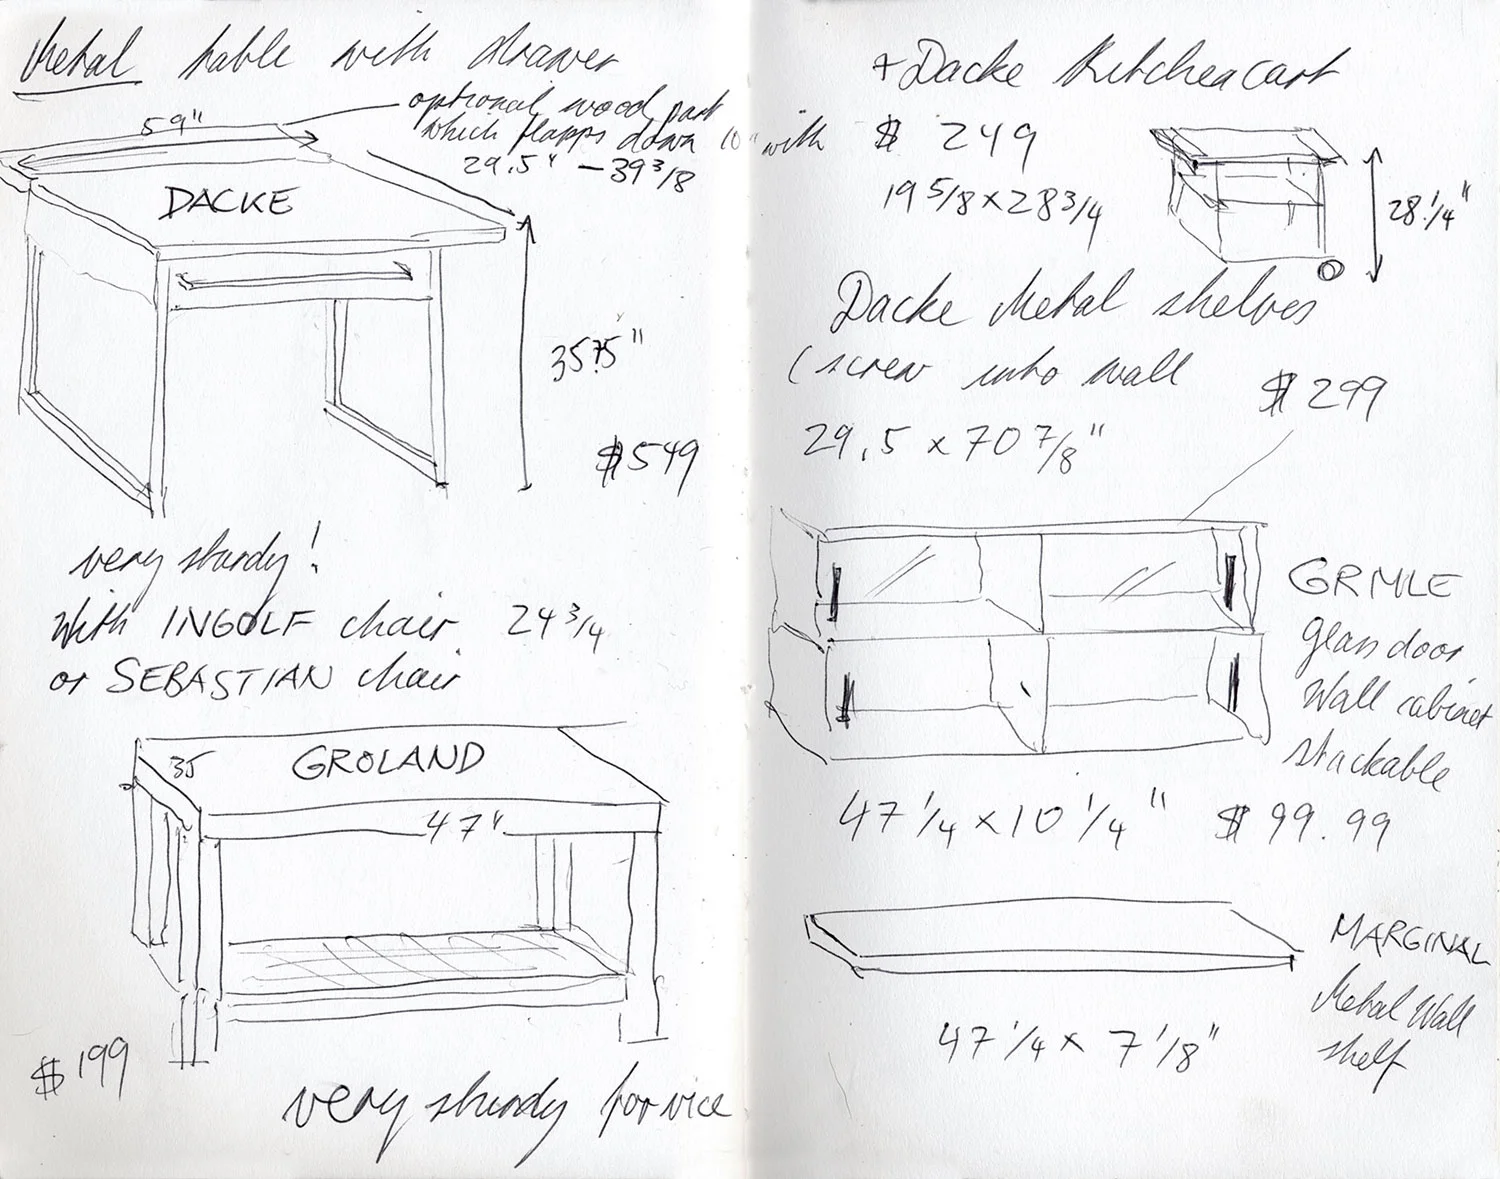 Metal table with drawer
59"
optional wood part
which flapps down 10" with
29.5" – 39 3/8
DACKE
35.75"
$549
very sturdy!
With INGOLF chair 24 3/4
or SEBASTIAN chair
35
GROLAND
47"
$199
very sturdy for vice
+ Dacke Kitchencart
$ 249
19 5/8 x 28 3/4
28 1/4"
Dacke Metal shelves
(screw into wall
$ 299
29.5 x 70 7/8"
GRMLE
glass door
Wall cabinet
stackable
47 1/4 x 10 1/4" $ 99.99
MARGINAL
Metal Wall
shelf
47 1/4 x 7 1/8"